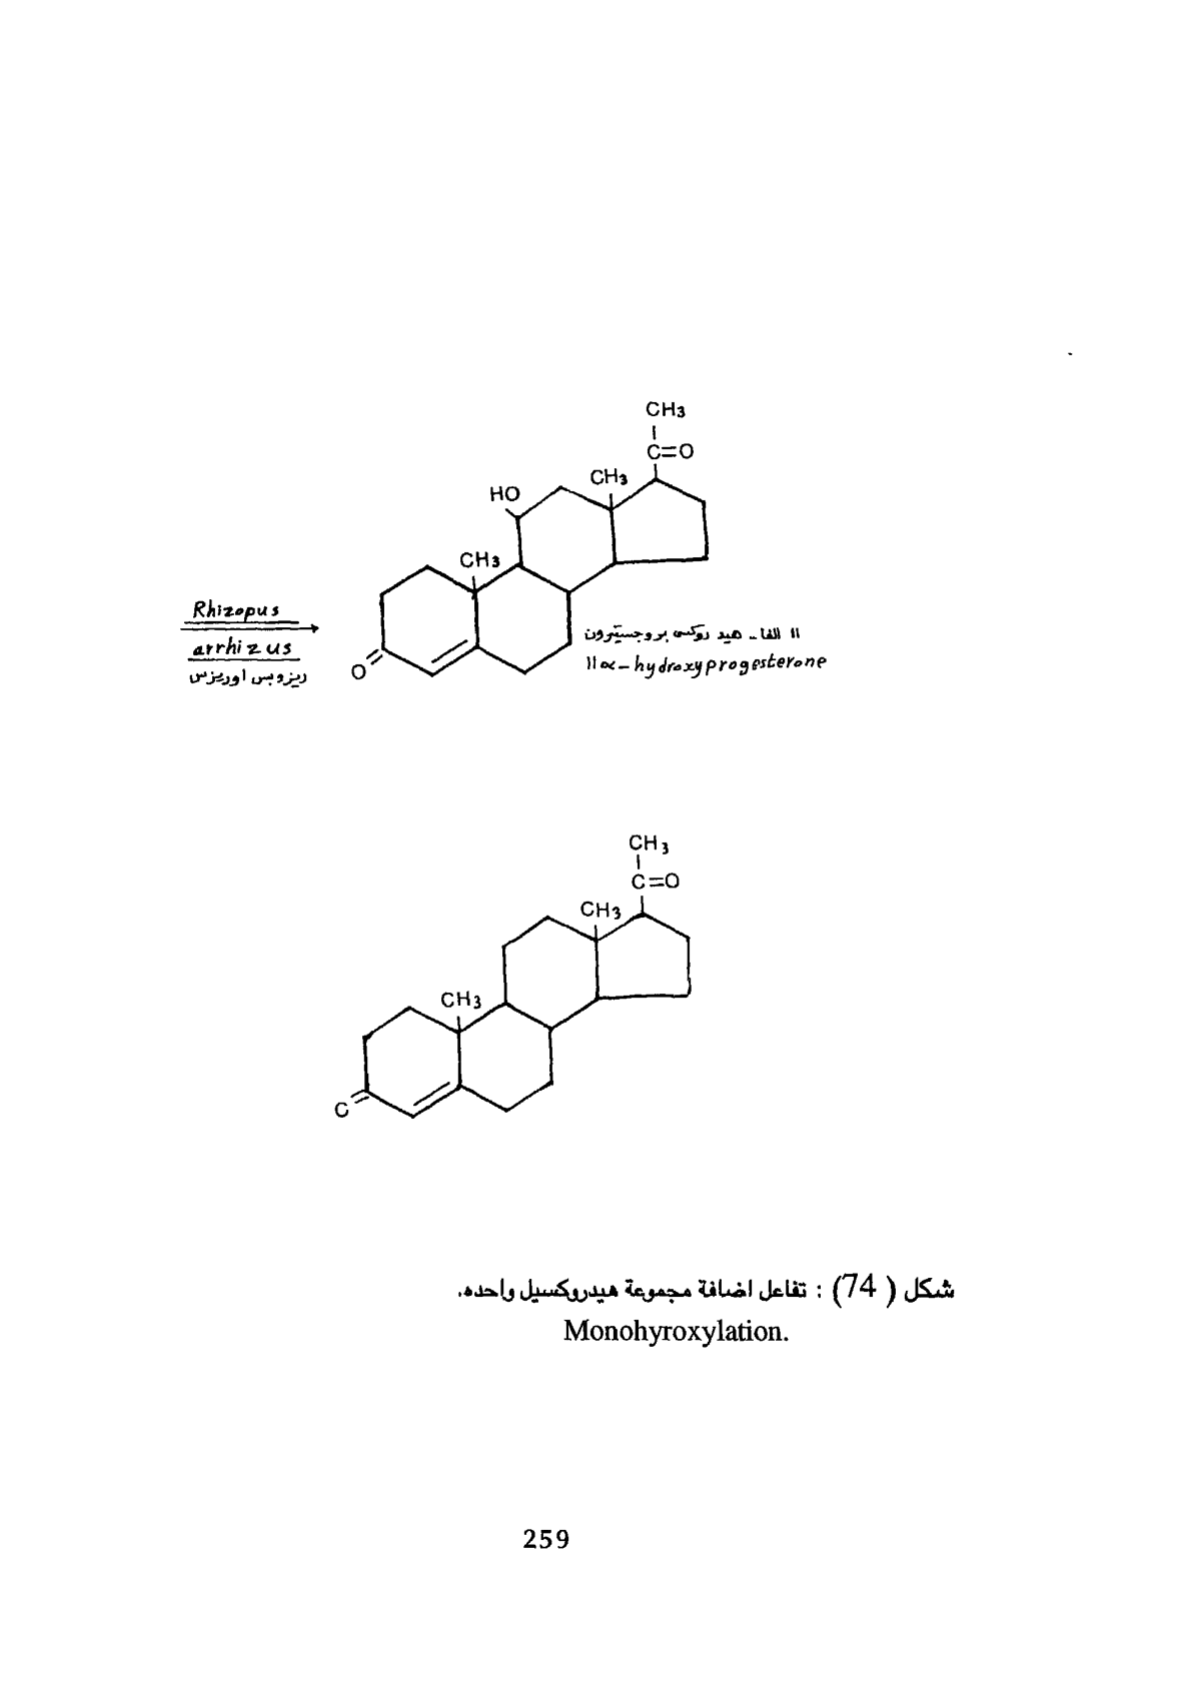 CH3
C=O
CH3
HO
CH3
Rhizopus
arrhizus
ريزوبس اوريزس
O
11 الفا - هيدروكسى بروجستيرون
11α-hydroxyprogesterone
CH3
C=O
CH3
CH3
C
شكل ( 74) : تفاعل اضافة مجموعة هيدروكسيل واحده.
Monohyroxylation.
259